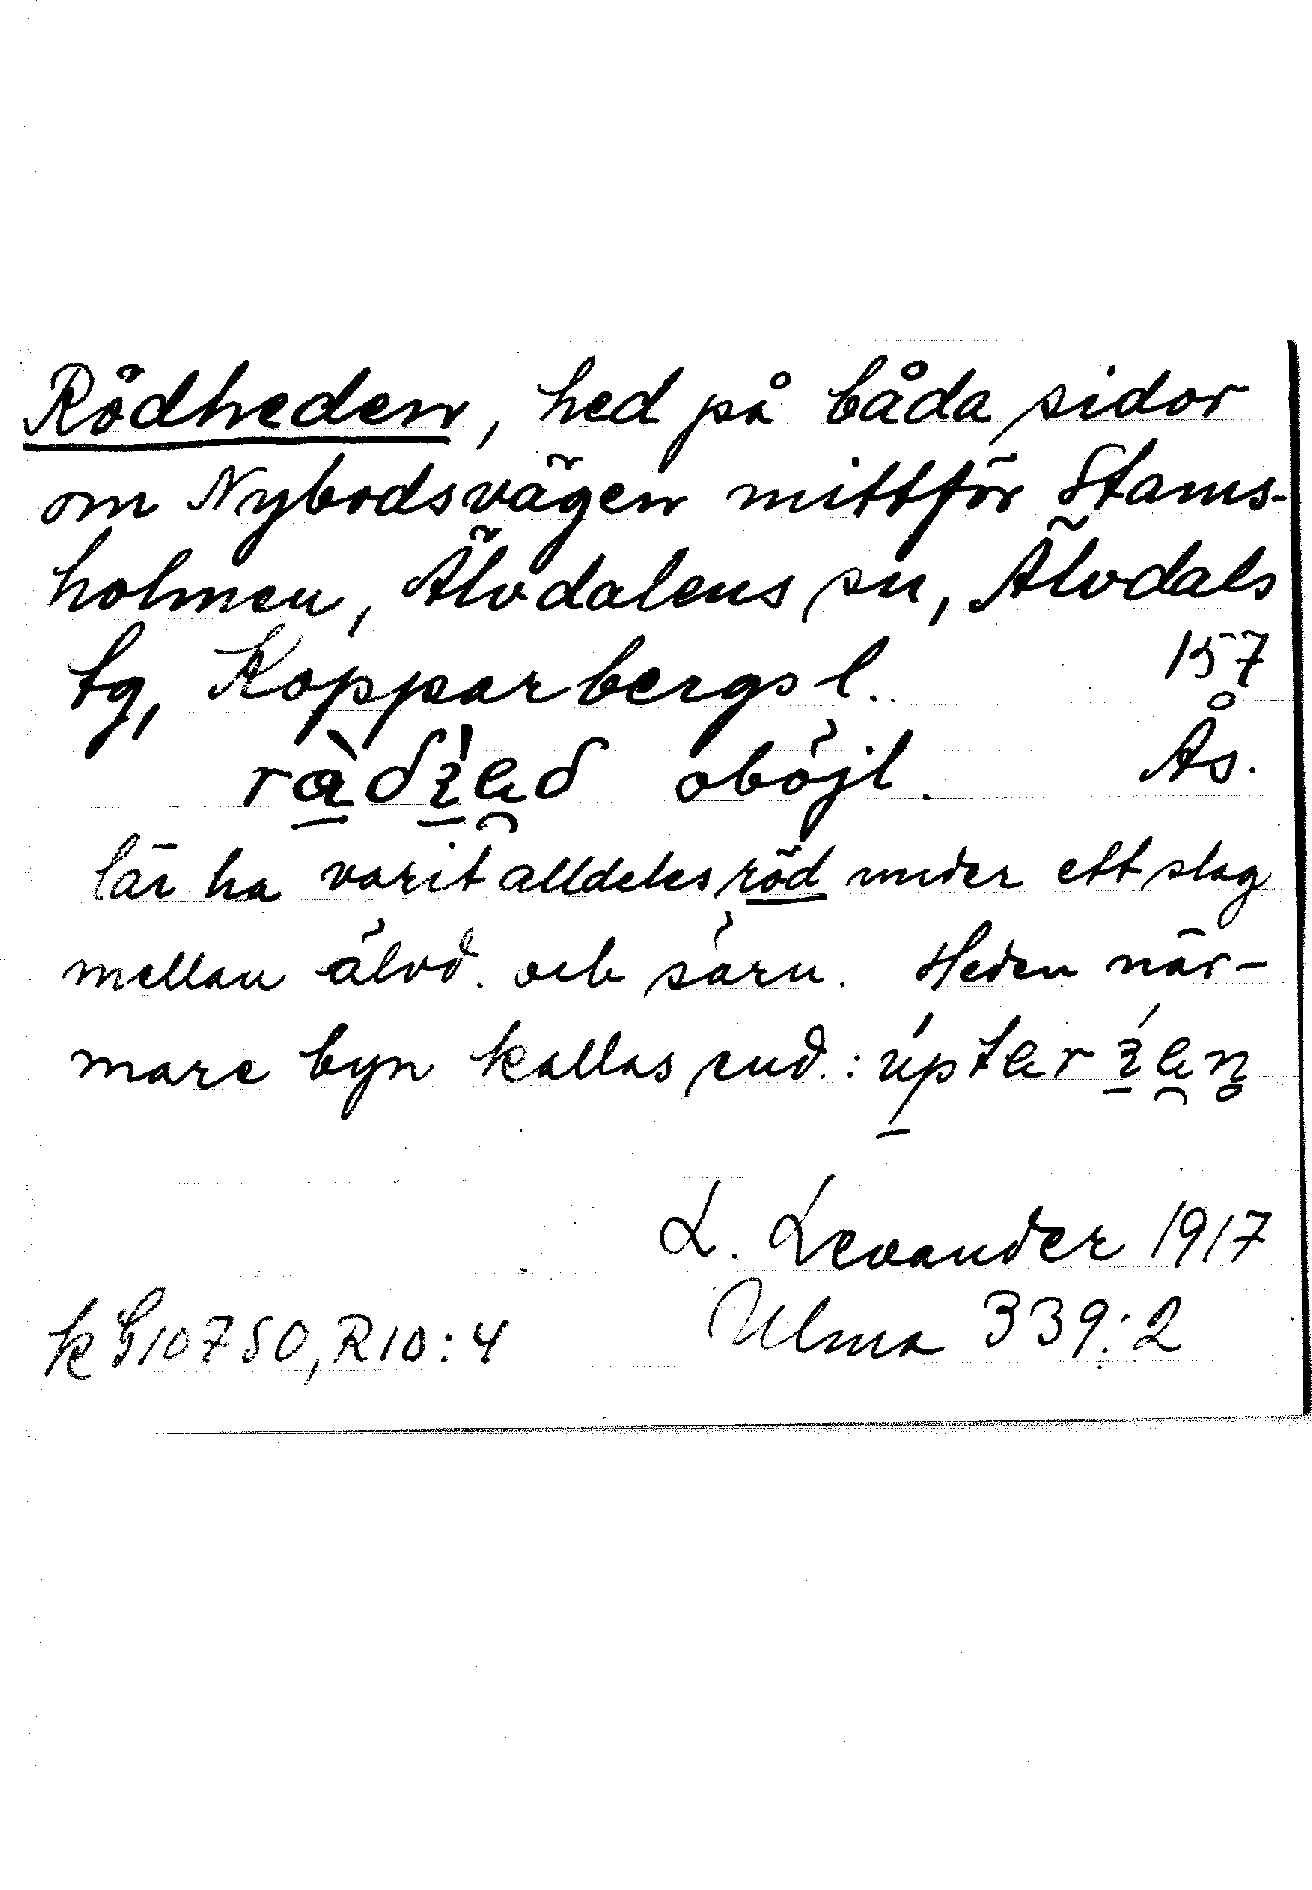 Rödheden, hed på båda sidor
om Nybodsvägen mittför Stams-
holmen, Älvdalens sn, Älvdals
tg, Kopparbergs l. 157
oböjl. Ås.
lär ha varit alldeles röd under ett slag
mellan älvd. och särn. Heden när-
mare byn kallas end.:
L. Levander 1917
k G10750, R10:4 Ulma 339:2